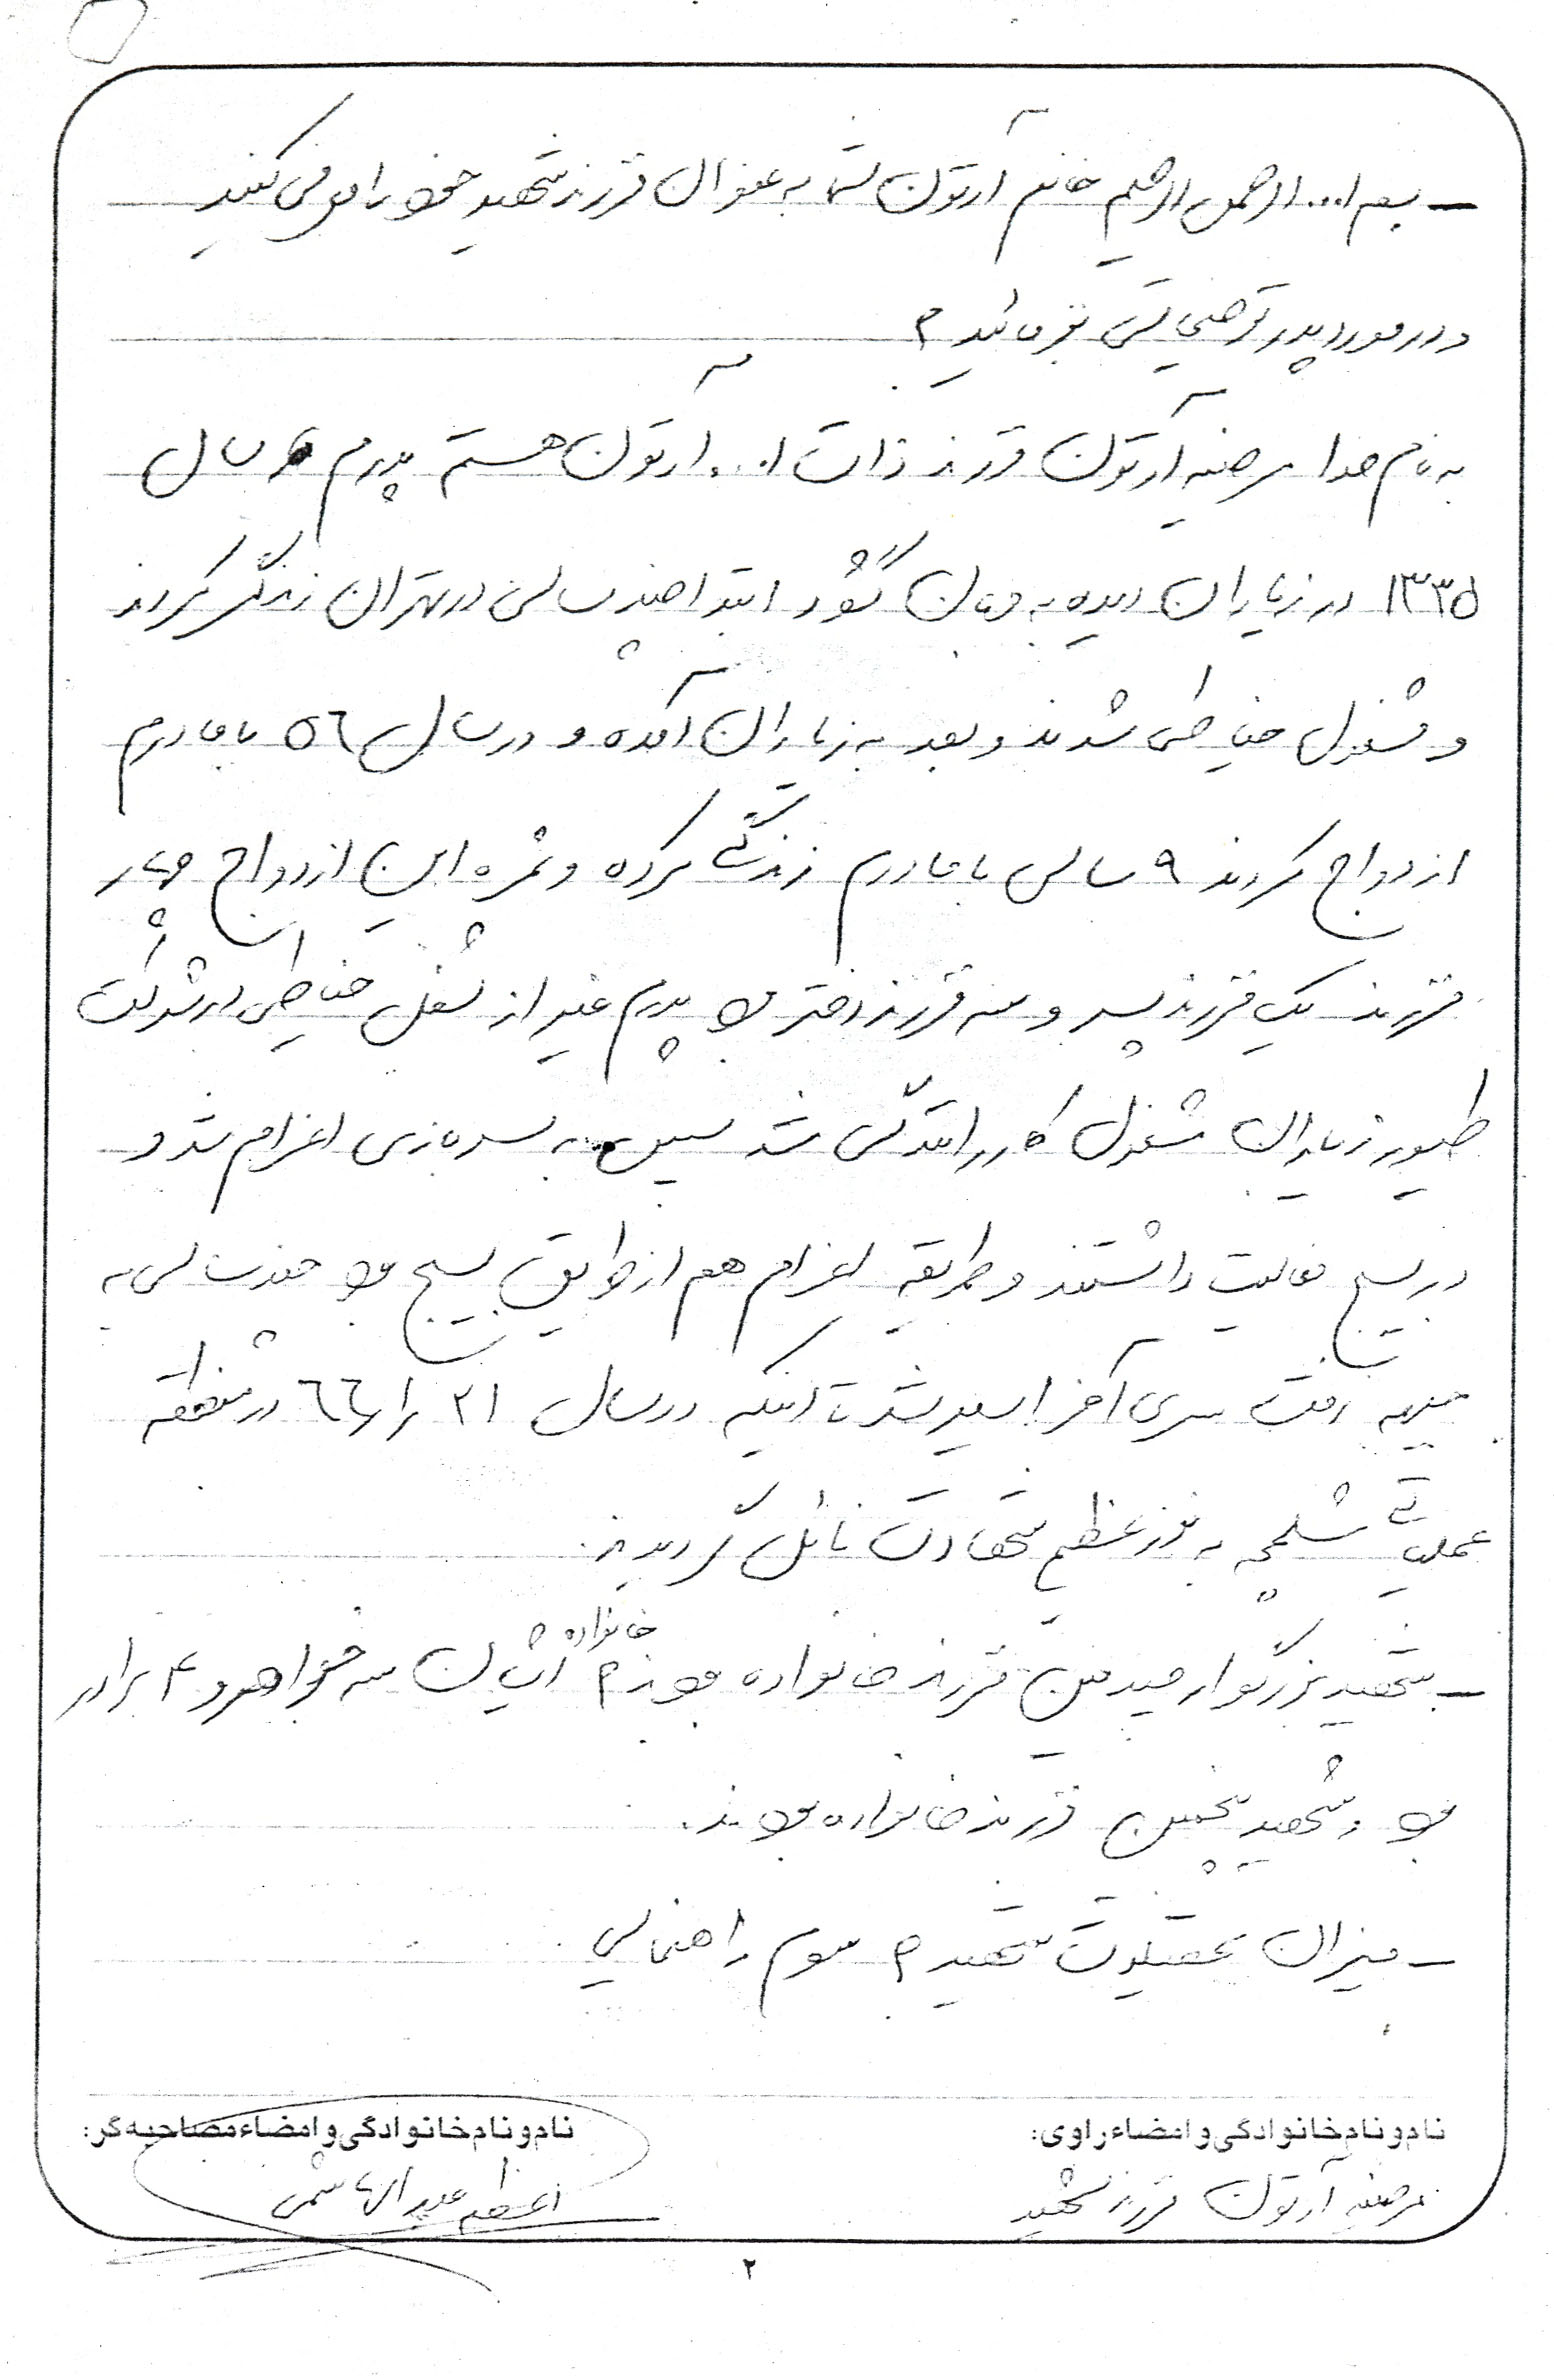 ـ بسم ا... الرحمن الرحیم خانم آرتون شما به عنوان فرزند شهید خود را معرفی کنید
و در مورد پدر توضیحاتی بفرمائید؟
به نام خدا مرضیه آرتون فرزند ذات ا... آرتون هستم پدرم در سال
۱۳۳۵ در زیاران دیده به جهان گشود ابتدا چند سالی در تهران زندگی کردند
و مشغول خیاطی شدند و بعد به زیاران آمده و در سال ۵۶ با مادرم
ازدواج کردند ۹ سالی با مادرم زندگی کرده و ثمره این ازدواج چهار
فرزند یک فرزند پسر و سه فرزند دختر بود پدرم غیر از شغل خیاطی در شرکت
طیور زیاران مشغول کار رانندگی شد سپس به سربازی اعزام شد و
در بسیج فعالیت داشتند و طریقه اعزام هم از طریق بسیج بود چند سالی به
جبهه رفت سری آخر اسیر شد تا اینکه در سال ۲۱/۱/۶۶ در منطقه
عملیاتی شلمچه به فوز عظیم شهادت نائل گردیدند.
ـ شهید بزرگوار چندمین فرزند خانواده بودند؟ خانواده ایشان سه خواهر و ۴ برادر
بود و شهید پنجمین فرزند خانواده بودند.
ـ میزان تحصیلات شهید؟ سوم راهنمایی
نام و نام خانوادگی و امضاء راوی:
مرضیه آرتون فرزند شهید
نام و نام خانوادگی و امضاء مصاحبه‌گر:
اعظم عبدالهاشمی
۲